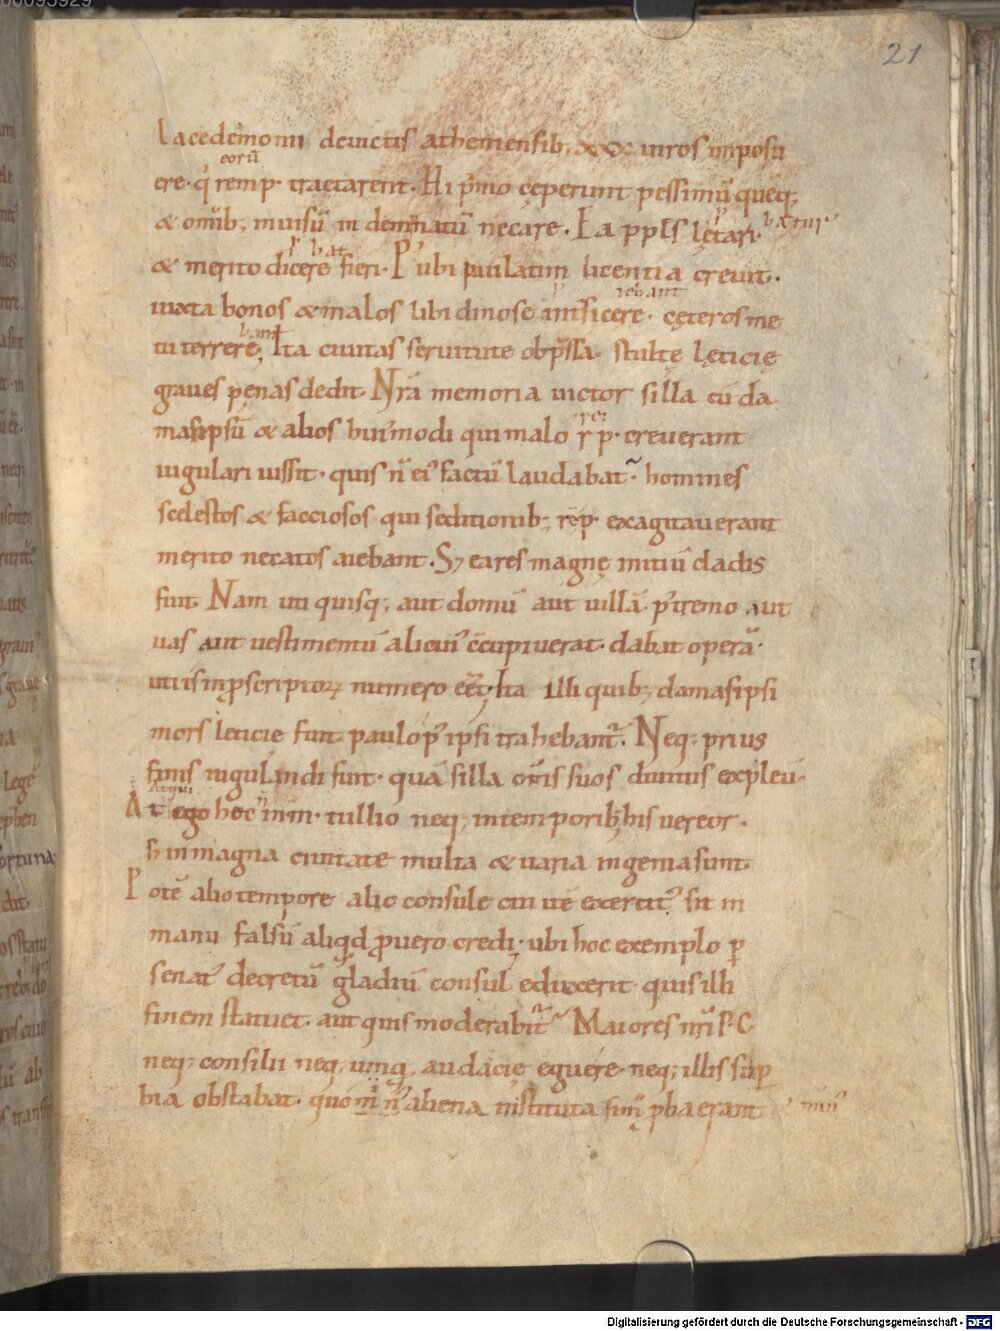 21
Lacedemonii devictis atheniensib; xxx viros imposu
eorū
ere · q̇ remp · tractarent · Hi p̄mo cęperunt pessimū quēq;
& omīb; invisū indemnatū necare · Ea ppłs lętari
bātur
& merito dicere fieri · P' ubi paulatim licentia crevit ·
r bat
iuxta bonos & malos libidinose int̄ficere · cęteros me
rebant
tu terrere; Ita civitas servitute obp̄ssa · stultę lęticię
bant
graves pęnas dedit · Nrā memoria victor silla cū da
masipsū & alios hui'modi qui malo r̄ p · creverant
rei
iugulari iussit · quis n̄ ei' factū laudabat · homines
scelestos & facciosos qui seditionib; rēp · exagitaverant
merito necatos aiebant · S; ea res magnę initiū cladis
fuit · Nam uti quisq; aut domū aut villā p'tremo aut
vas aut vestimentū alicui' c̄cupiverat · dabat operā ·
uti is in p̄scriptoꝝ numero eēt; Ita illi quib; damasipsi
mors leticie fuit paulo p' ipsi trahebant' · Neq; prius
finis iugulandi fuit · quā silla om̄s suos divitiis explevi ·
Atqui
At ego hoc n̄ in m · tullio neq; in temporib; his vereor ·
s; in magna civitate multa & varia ingenia sunt
Potē alio tempore alio consule cui itē exercit' sit in
manu falsū aliq̇d ꝓ vero credi; ubi hoc exemplo ꝑ
senat' decretū gladiū consul eduxerit quis illi
finem statuet · aut quis moderabit' Maiores nr̄i P · C
neq; consilii neq; unq̄ audacię eguere · neq; illis supꝑ
bia obstabat · quo mi' n̄ aliena instituta si m̄ p̄ba erant